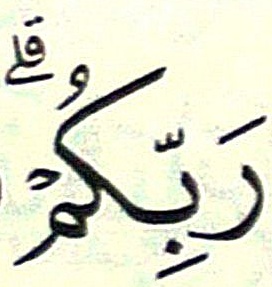 رَبِّكُمْ ۗ